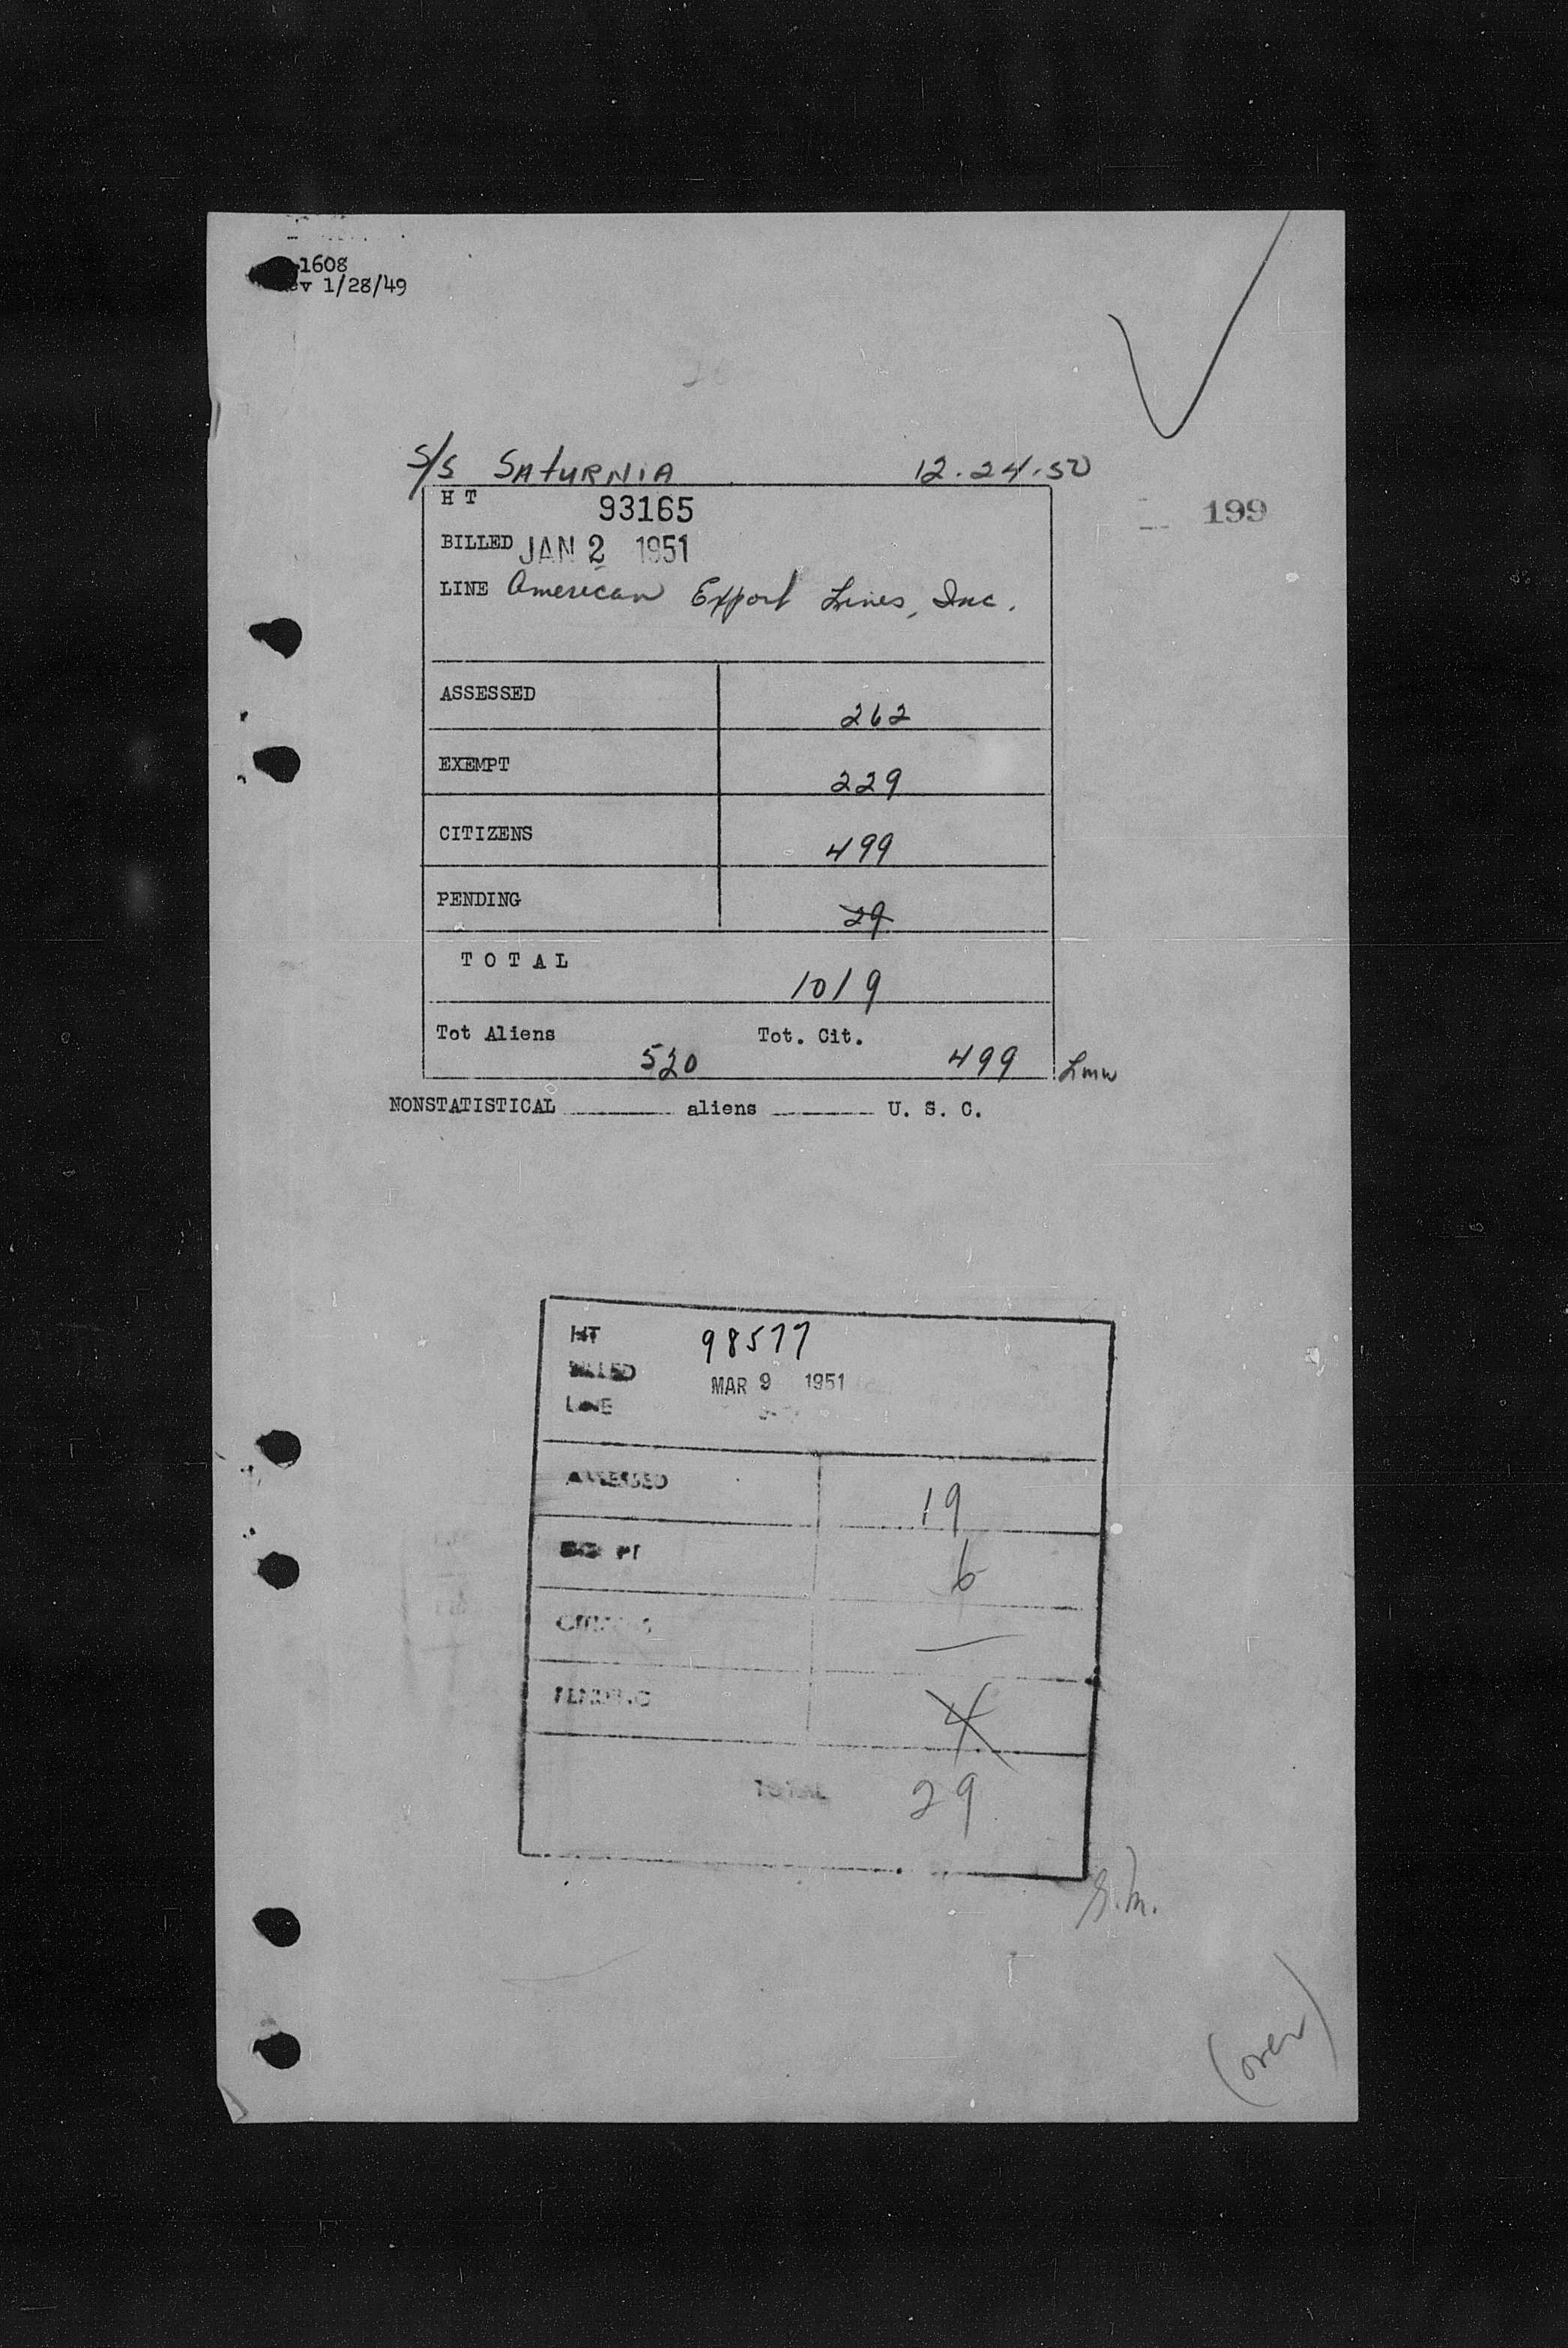 1608
ev 1/28/49
S/S SATURNIA 12.24.50
H T 93165
199
BILLED JAN 2 1951
LINE American Export Lines, Inc.
ASSESSED 262
EXEMPT 229
CITIZENS 499
PENDING 29
T O T A L 1019
Tot Aliens 520 Tot. Cit. 499 Lmw
NONSTATISTICAL aliens U. S. C.
HT 98577
BILLED MAR 9 1951
LINE
ASSESSED 19
6
CITIZENS —
PENDING 4
TOTAL 29
S.M.
(over)